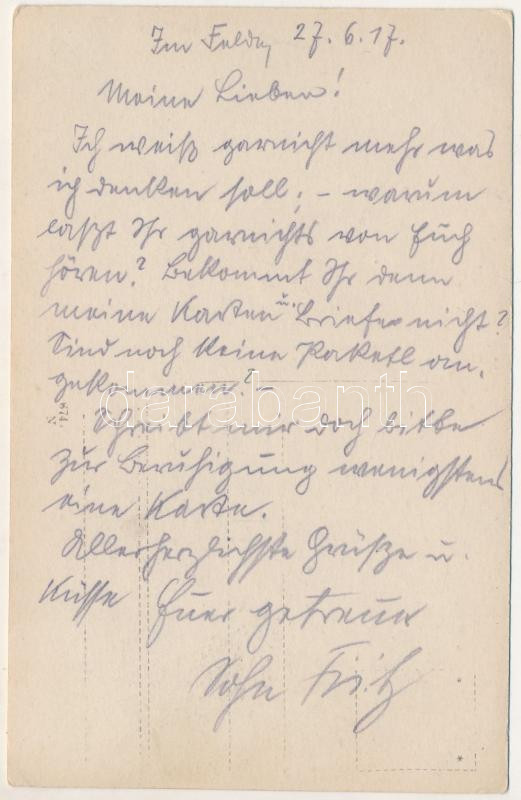 Im Felde, 27.6.17.
Meine Lieben!
Ich weiß garnicht mehr was
ich denken soll; – warum
laßt Ihr garnichts von Euch
hören? Bekommt Ihr denn
meine Karten u. Briefe nicht?
Sind noch keine Paketl an-
gekommen? –
Schreibt mir doch bitte
zur Beruhigung wenigstens
eine Karte.
Allerherzlichste Grüße u.
Küsse Euer getreuer
Sohn Fritz
darabanth
674.